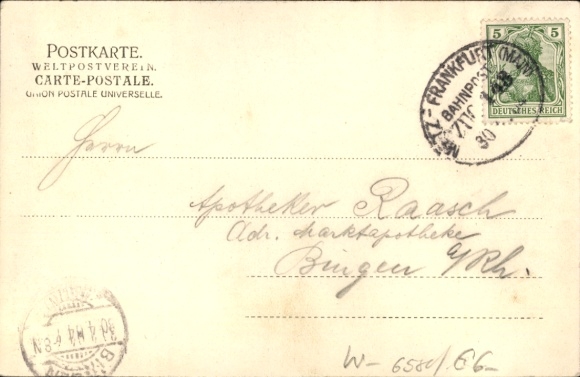 POSTKARTE.
WELTPOSTVEREIN.
CARTE-POSTALE.
UNION POSTALE UNIVERSELLE.
5 5
DEUTSCHES REICH
METZ - FRANKFURT (MAIN)
BAHNPOST
ZUG
30
Herrn
Apotheker Raasch
Adr. Marktapotheke
Bingen a/Rh.
30.4.04
W- 6580/. 66-